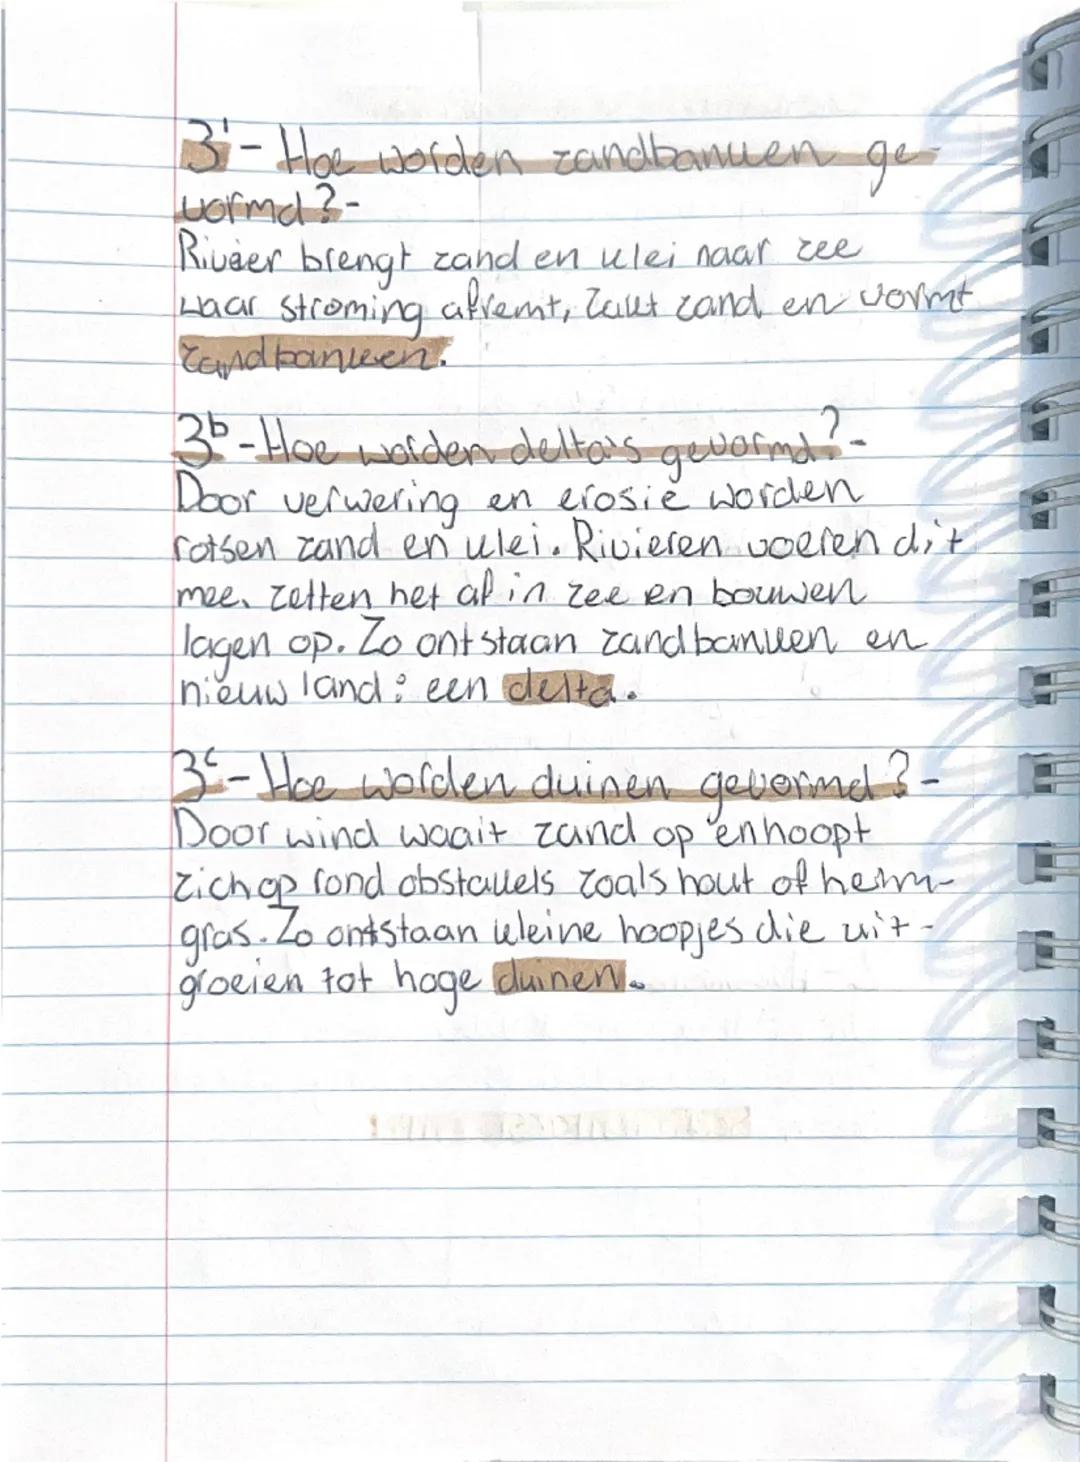 3' - Hoe worden zandbanken ge-
vormd? -
Rivier brengt zand en klei naar zee
waar stroming afremt, zakt zand en vormt
zandbanken.
3b - Hoe worden delta's gevormd? -
Door verwering en erosie worden
rotsen zand en klei. Rivieren voeren dit
mee, zetten het af in zee en bouwen
lagen op. Zo ontstaan zandbanken en
nieuw land: een delta.
3c - Hoe worden duinen gevormd? -
Door wind waait zand op en hoopt
zich op rond obstakels zoals hout of helm-
gras. Zo ontstaan kleine hoopjes die uit-
groeien tot hoge duinen.